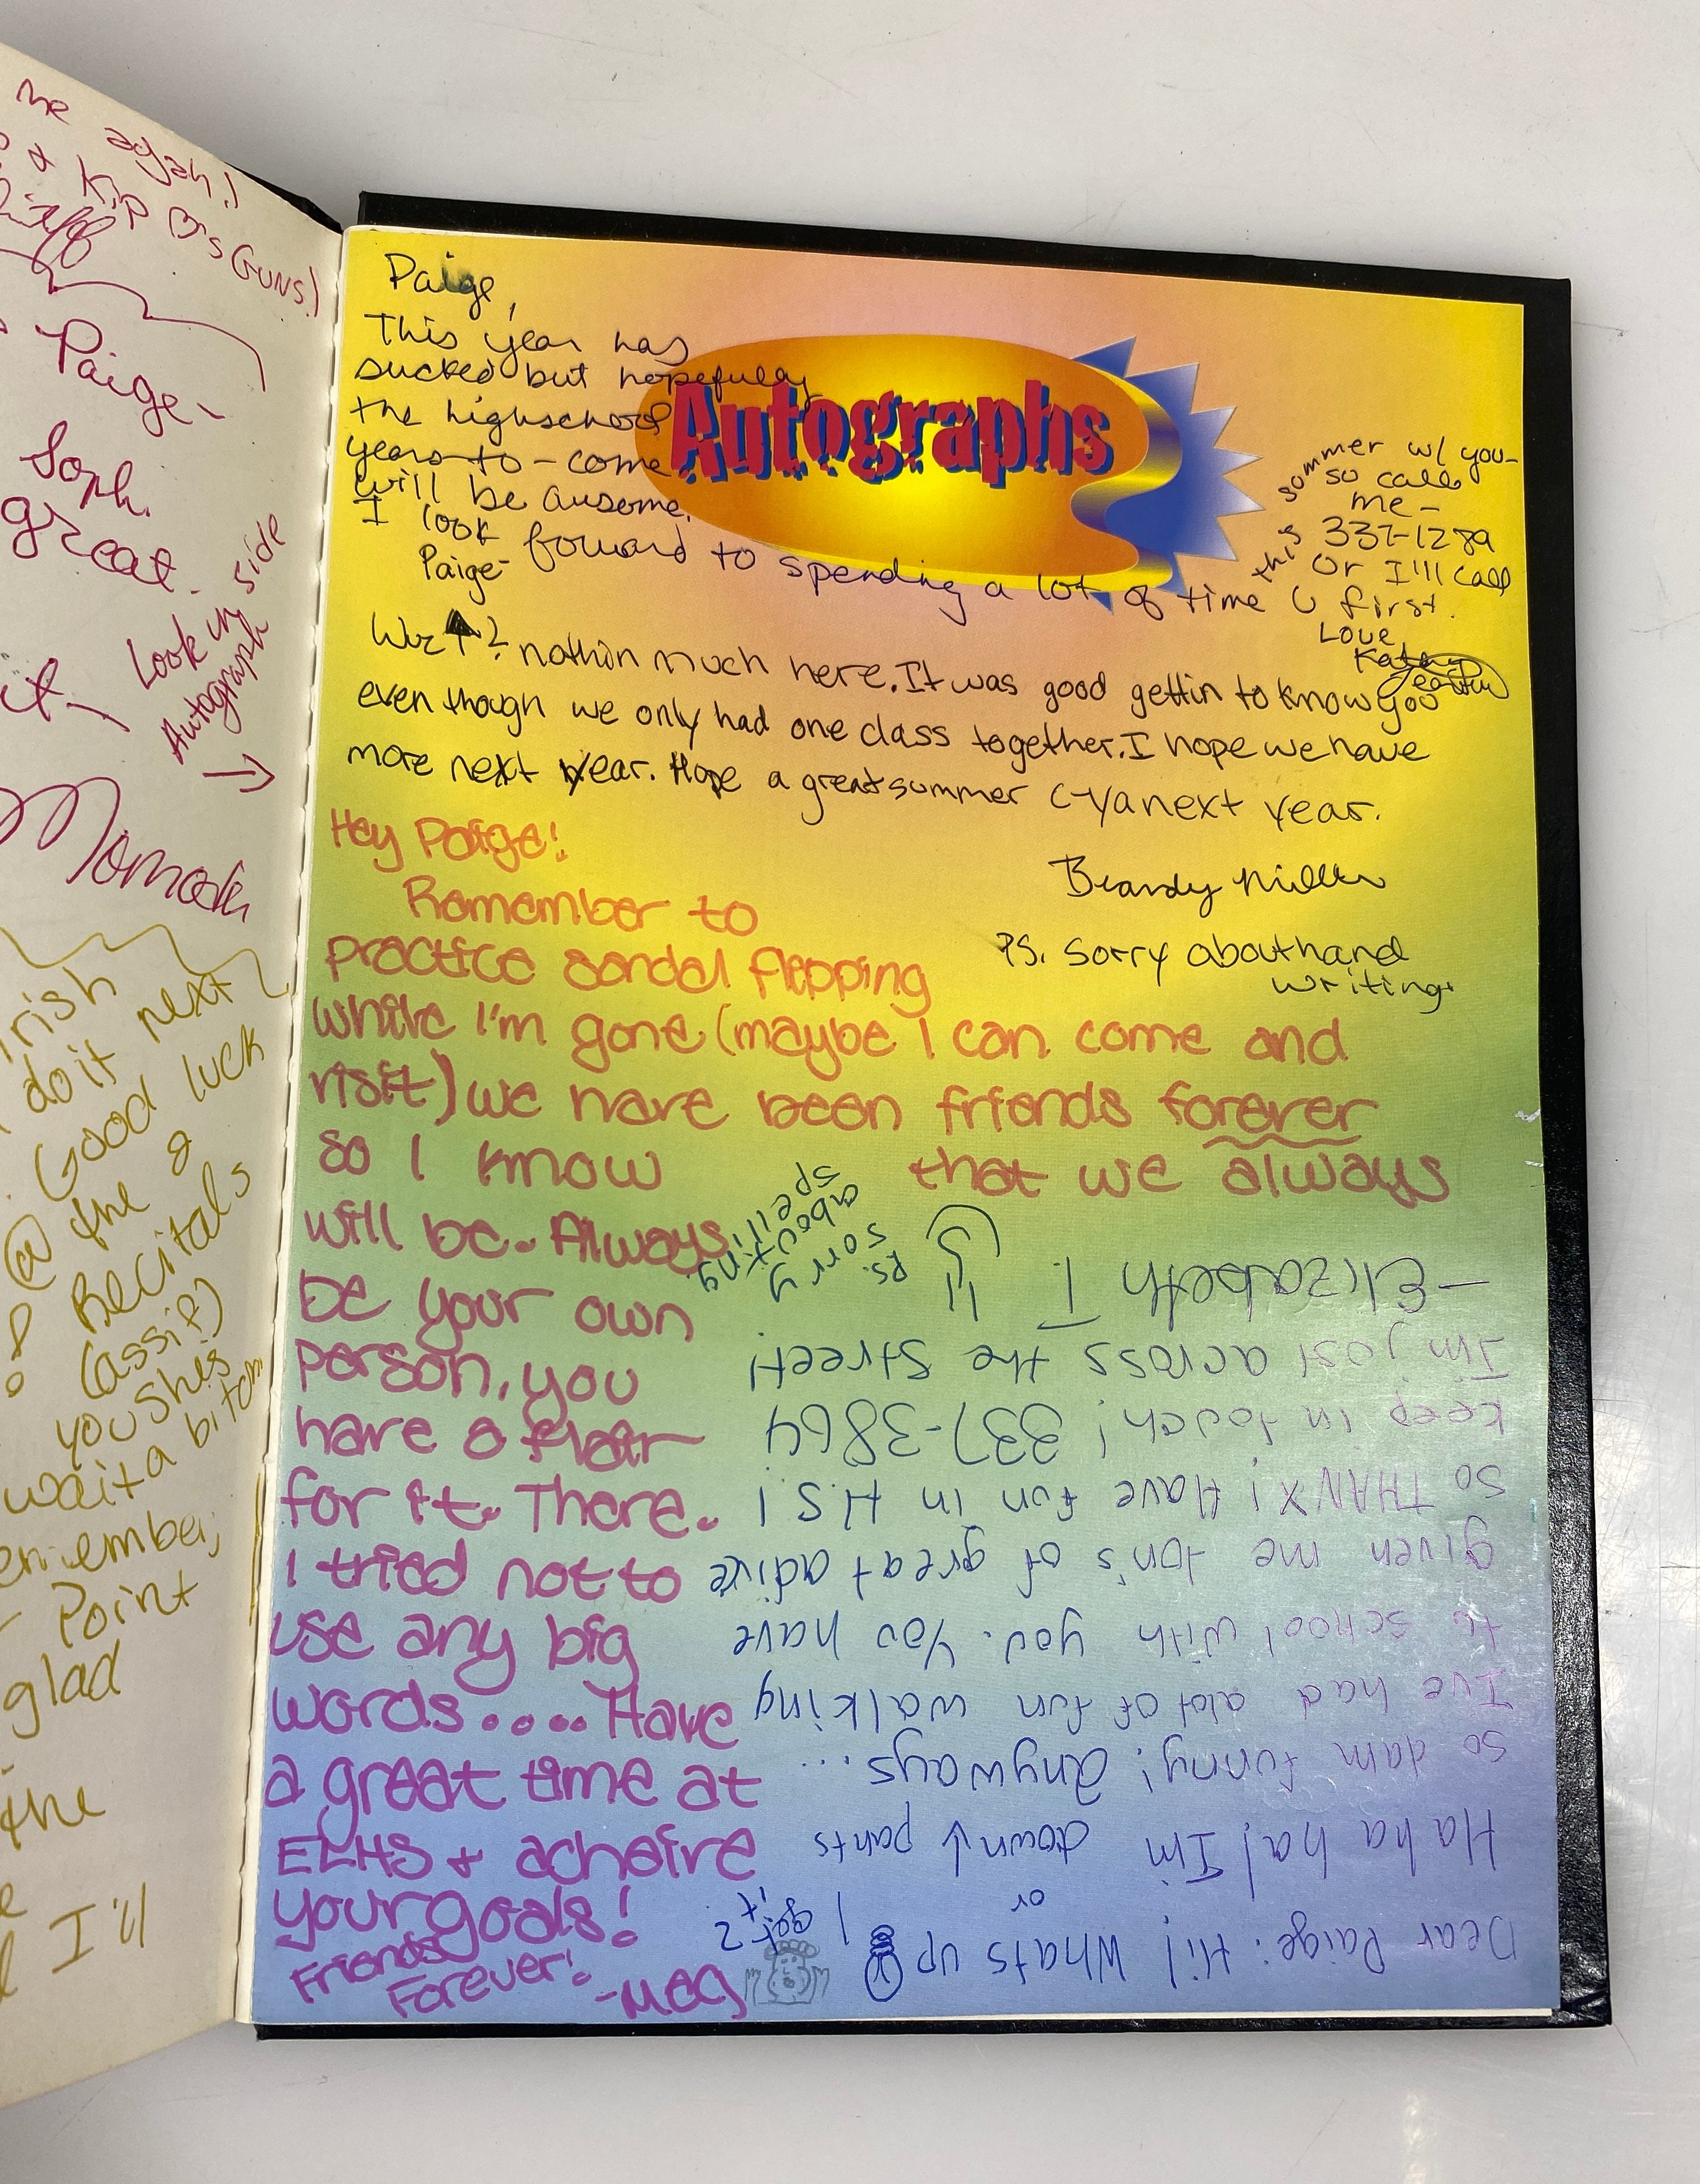 me again!
& Kip B's GUNS)
Paige-
Soph.
great.
Look in side
Autograph
→
irish
do it next
Good luck
@ the 8
Recitals
(assif)
you shes
wait a bitch
remember,
Point
glad
the
I'll
Autographs
Paige,
This year has
sucked but hopefully
the highschool
years-to-come
will be ausome.
I look forward to spending a lot of time
this summer w/ you-
so call
me-
337-1289
Or I'll call
U first.
Love
Kathy
Paige-
Wuz ↑? nothin much here. It was good gettin to know you
even though we only had one class together. I hope we have
more next year. Hope a great summer C-ya next year.
Brandy Miller
P.S. Sorry about hand
writing.
Hey Paige!
Remember to
practice sandal flipping
while I'm gone. (maybe I can come and
visit) we have been friends forever
so I know that we always
will be. Always
be your own
person, you
have a flair
for it. There.
I tried not to
use any big
words.... Have
a great time at
ELHS + acheive
your goals!
Friends
Forever!
-Meg
Dear Paige: Hi! Whats up
or
got it?
Ha ha ha! I'm down ↓ pants
so dam funny! Anyways...
I've had alot of fun walking
to school with you. You have
given me ton's of great adive
so THANX! Have fun in H.S!
Keep in touch! 337-3864
I'm just across the street!
-Elizabeth T.
P.S. sorry
about
spelling